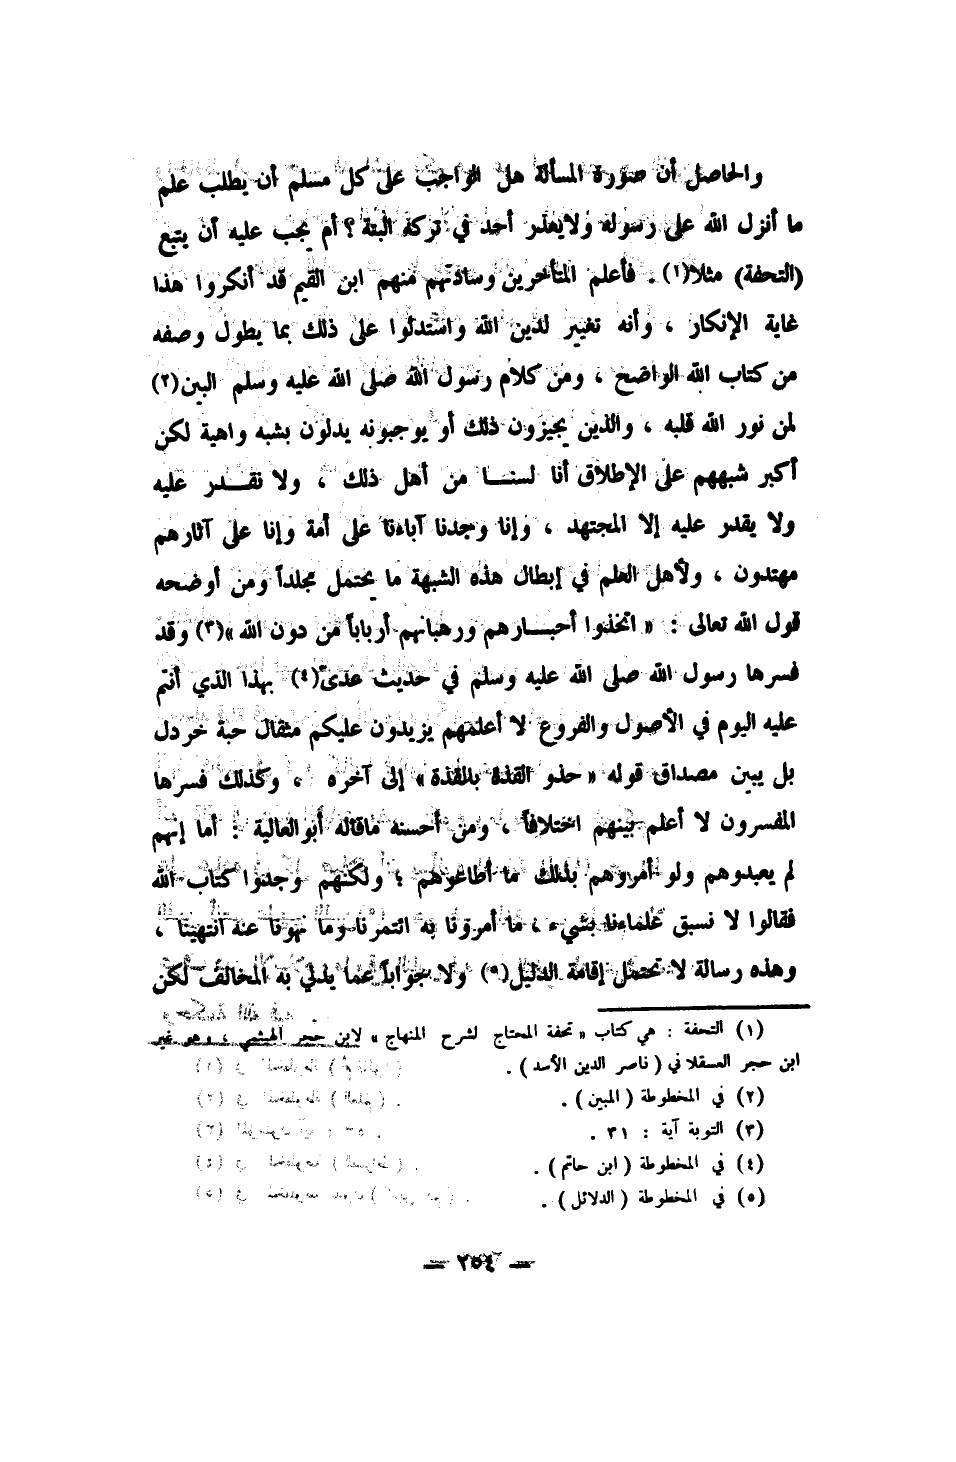 والحاصل أن صورة المسألة هل الواجب على كل مسلم أن يطلب علم
ما أنزل الله على رسوله ولايعذر أحد في تركه البتة ؟ أم يجب عليه أن يتبع
(التحفة) مثلا(١) . فأعلم المتأخرين وسادتهم منهم ابن القيم قد أنكروا هذا
غاية الإنكار ، وأنه تغيير لدين الله واستدلوا على ذلك بما يطول وصفه
من كتاب الله الواضح ، ومن كلام رسول الله صلى الله عليه وسلم البين(٢)
لمن نور الله قلبه ، والذين يجيزون ذلك أو يوجبونه يدلون بشبه واهية لكن
أكبر شبههم على الإطلاق أنا لسنــا من أهل ذلك ، ولا نقــدر عليه
ولا يقدر عليه إلا المجتهد ، وإنا وجدنا آباءنا على أمة وإنا على آثارهم
مهتدون ، ولأهل العلم في إبطال هذه الشبهة ما يحتمل مجلداً ومن أوضحه
قول الله تعالى : « اتخذوا أحبــارهم ورهبانهم أرباباً من دون الله »(٣) وقد
فسرها رسول الله صلى الله عليه وسلم في حديث عدىّ(٤) بهذا الذي أنتم
عليه اليوم في الأصول والفروع لا أعلمهم يزيدون عليكم مثقال حبة خردل
بل يبين مصداق قوله « حذو القذة بالقذة » إلى آخره ، وكذلك فسرها
المفسرون لا أعلم بينهم اختلافاً ، ومن أحسنه ماقاله أبوالعالية : أما إنهم
لم يعبدوهم ولو أمروهم بذلك ما أطاعوهم ؛ ولكنهم وجدوا كتاب الله
فقالوا لا نسبق علماءنا بشيء ، ما أمرونا به ائتمرنا وما نهونا عنه انتهينا ،
وهذه رسالة لا تحتمل إقامة الدليل(٥) ولا جواباً عما يدلي به المخالف لكن
(١) التحفة : هي كتاب « تحفة المحتاج لشرح المنهاج » لابن حجر الهيثمي ، وهو غير
ابن حجر العسقلاني ( ناصر الدين الأسد ) .
(٢) في المخطوطة ( المبين ) .
(٣) التوبة آية : ٣١ .
(٤) في المخطوطة ( ابن حاتم ) .
(٥) في المخطوطة ( الدلائل ) .
— ٢٥٤ —